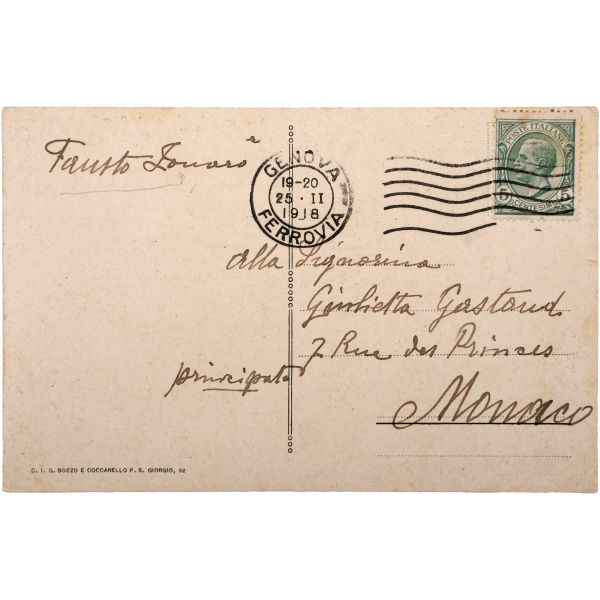 Fausto Zonaro
GENOVA
19-20
25 · II
1918
FERROVIA
POSTE ITALIANE
5 5
CENTESIMI
alla Signorina
Giulietta Gastaud
7 Rue des Princes
principato
Monaco
C. I. G. BOZZO E COCCARELLO P. S. GIORGIO, 32